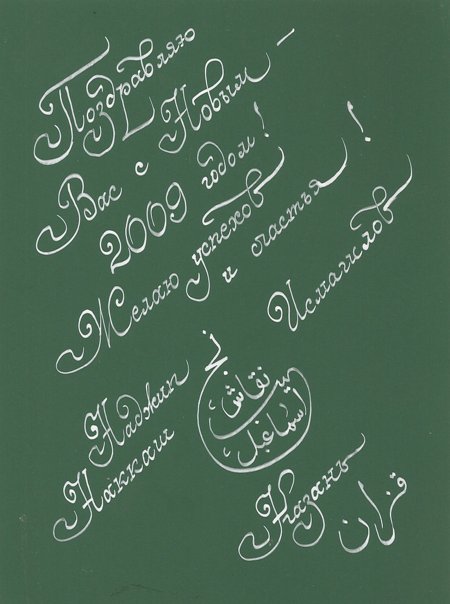 Поздравляю
Вас с Новым –
2009 годом!
Желаю успехов
и счастья!
Исмагилов
Наджип
Наккаш
نجيب
نقاش
اسماعيل
Казань
قزان